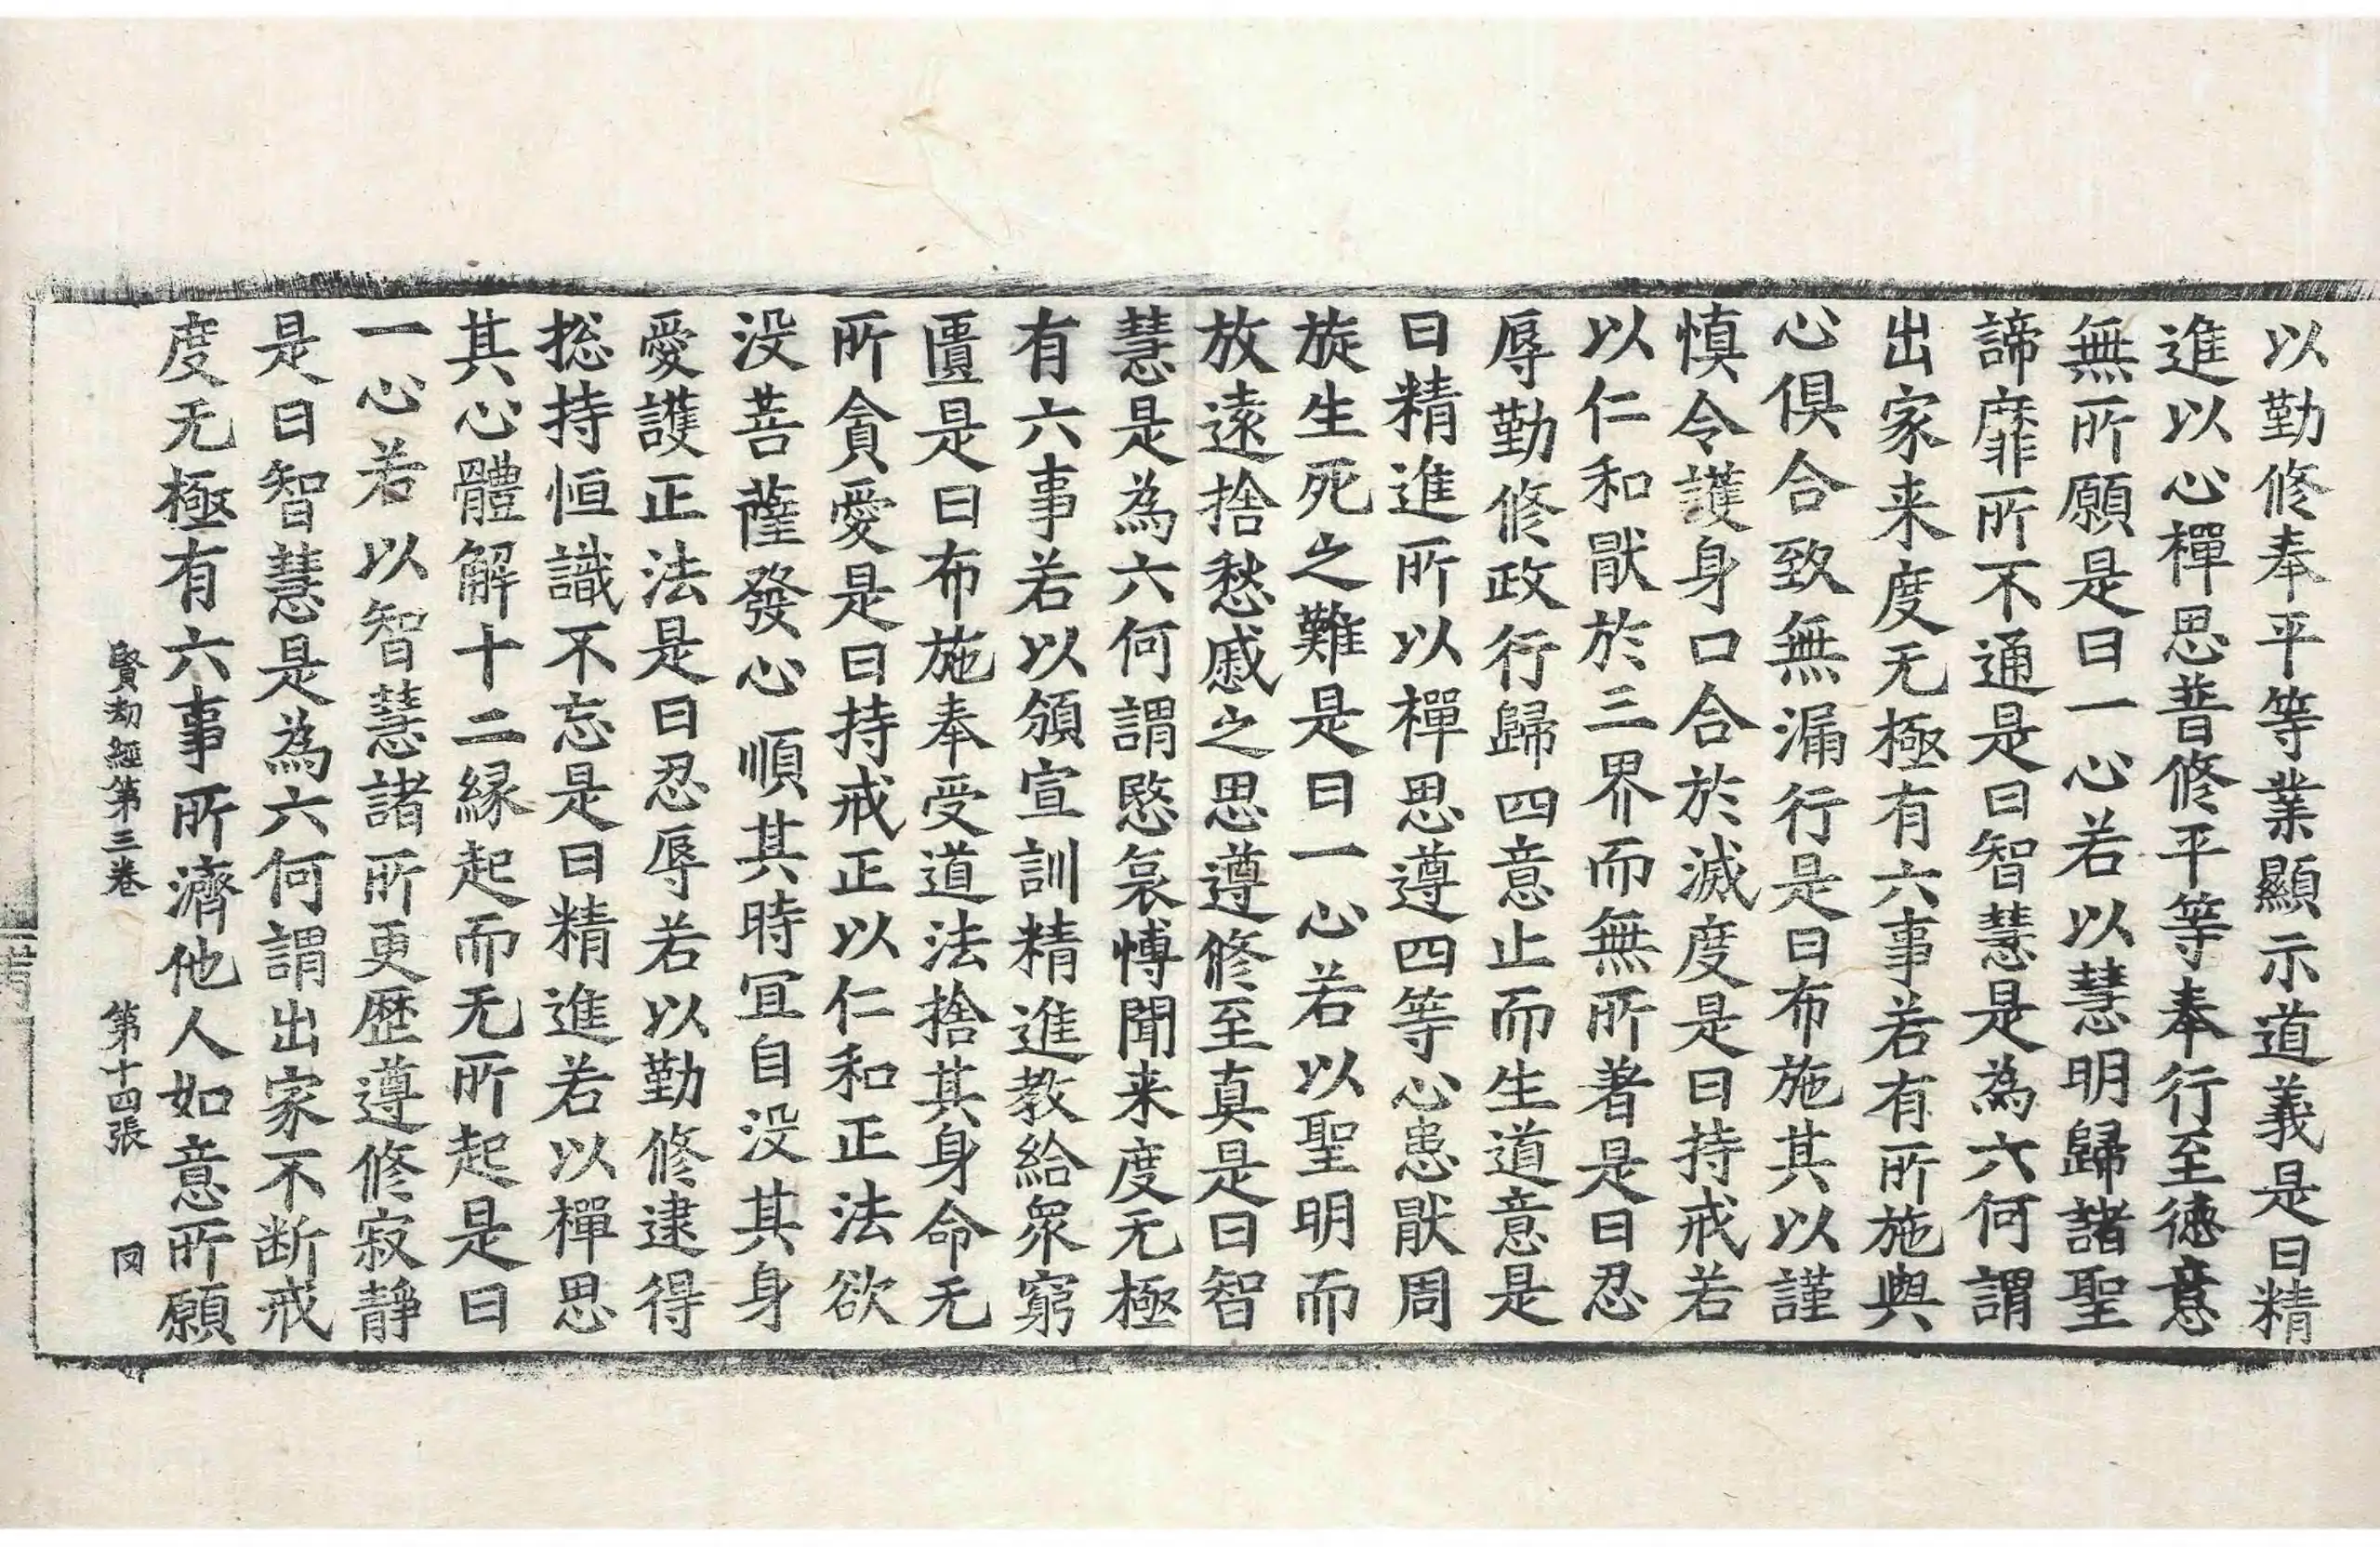 以勤修奉平等業顯示道義是曰精
進以心禪思普修平等奉行至德意
無所願是曰一心若以慧明歸諸聖
諦靡所不通是曰智慧是為六何謂
出家来度无極有六事若有所施與
心俱合致無漏行是曰布施其以謹
慎令護身口合於滅度是曰持戒若
以仁和猒於三界而無所著是曰忍
辱勤修政行歸四意止而生道意是
曰精進所以禪思遵四等心恚猒周
旋生死之難是曰一心若以聖明而
放遠捨愁慼之思遵修至真是曰智
慧是為六何謂愍哀博聞来度无極
有六事若以頒宣訓精進教給衆窮
匱是曰布施奉受道法捨其身命无
所貪愛是曰持戒正以仁和正法欲
没菩薩發心順其時冝自没其身
愛護正法是曰忍辱若以勤修逮得
捴持恒識不忘是曰精進若以禪思
其心體解十二縁起而无所起是曰
一心若以智慧諸所更歷遵修寂静
是曰智慧是為六何謂出家不断戒
度无極有六事所濟他人如意所願
賢劫經第三卷 第十四張